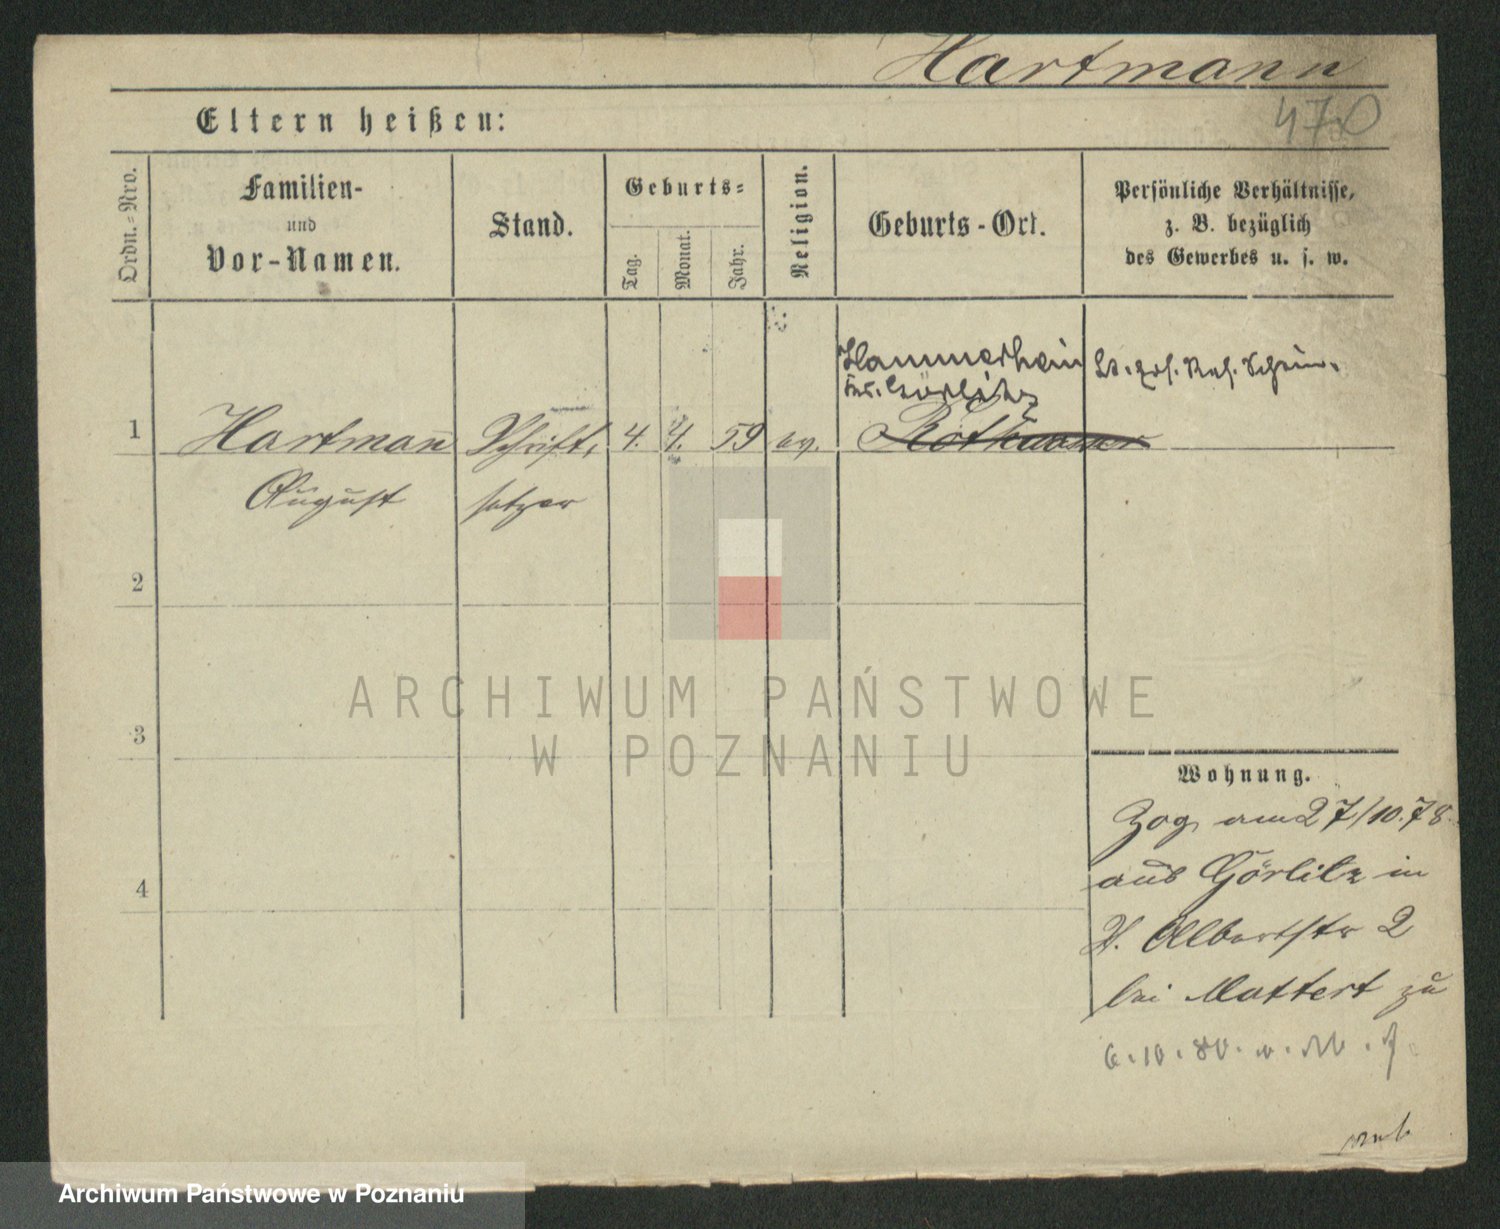 Hartmann
470
Eltern heißen:
Ordn.-Nro.
Familien-
und
Vor-Namen.
Stand.
Geburts-
Tag.
Monat.
Jahr.
Religion.
Geburts-Ort.
Persönliche Verhältnisse,
z. B. bezüglich
des Gewerbes u. s. w.
Hammerhain
Görlitz
1 Hartmann Schrift, 4. 4. 59 ev.
August setzer
2
3
4
Wohnung.
Zog am 27/10.78.
aus Görlitz in
Albertstr 2
bei Mattert zu
6.10.80.
ARCHIWUM PAŃSTWOWE
W POZNANIU
Archiwum Państwowe w Poznaniu